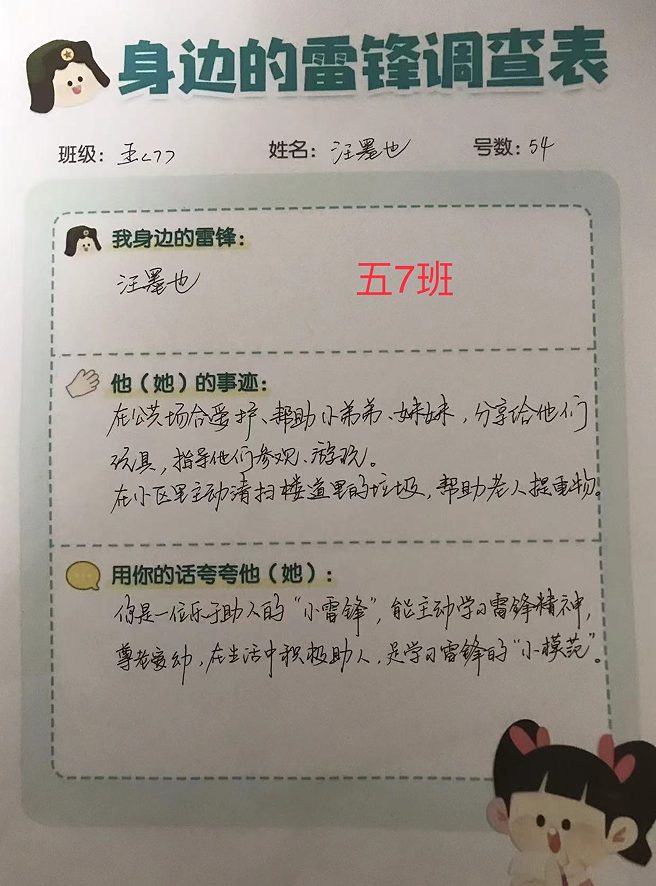 身边的雷锋调查表
班级：五<7> 姓名：汪墨也 号数：54
我身边的雷锋：
汪墨也
五7班
他（她）的事迹：
在公共场合爱护、帮助小弟弟、妹妹，分享给他们
玩具，指导他们参观、游玩。
在小区里主动清扫楼道里的垃圾，帮助老人提重物。
用你的话夸夸他（她）：
你是一位乐于助人的“小雷锋”，能主动学习雷锋精神，
尊老爱幼，在生活中积极助人，是学习雷锋的“小模范”。